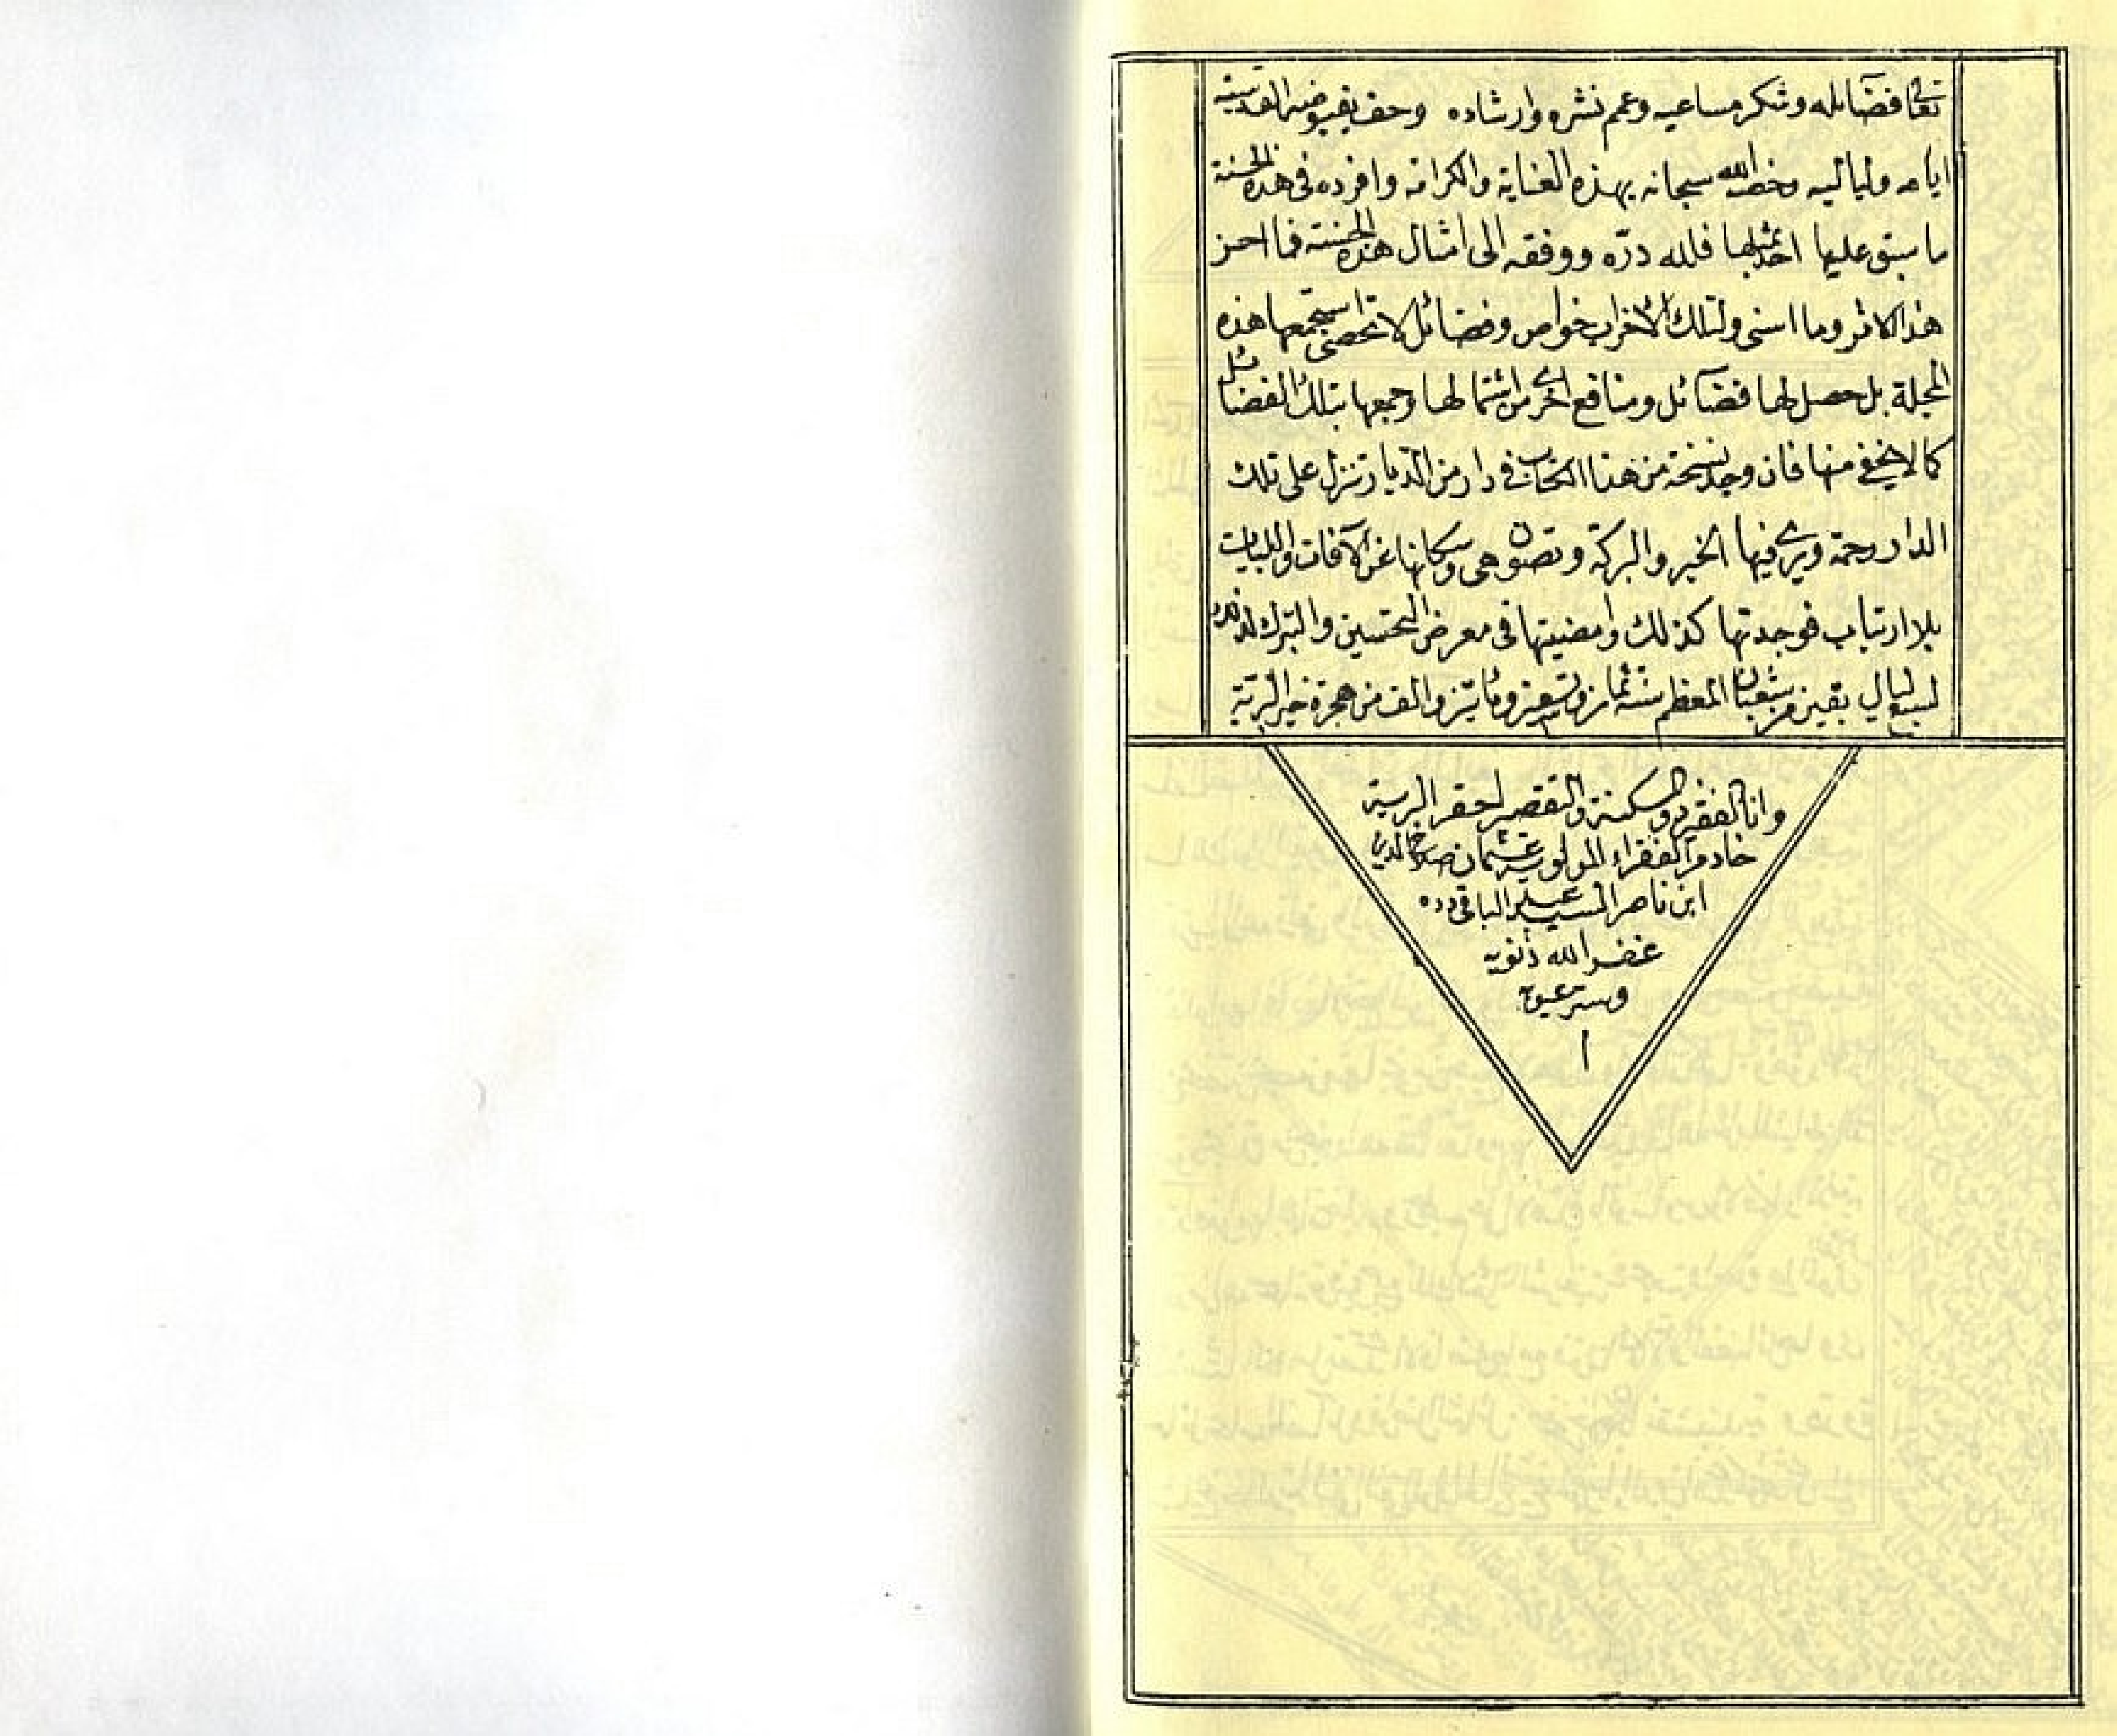 تعالى فضائله وشكر مساعيه وعم نشره وارشاده وحف بفيوضه القدسية
ايامه ولياليه وخصه الله سبحانه بهذه العناية والكرامة وافرده في هذه الحسنة
ما سبق عليها احد بمثلها فلله درّه ووفقه الى امثال هذه الحسنة فما احسن
هذا الاثر وما اسنى ولتلك الاحزاب خواص وفضائل لا تحصى استجمعها هذه
المجلة بل حصل لها فضائل ومنافع اخرى من اشتمالها وجمعها بتلك الفضائل
كما لا يخفى منها فان وجد نسخة من هذا الكتاب في دار من الديار تنزل على تلك
الدار رحمة ويرى فيها الخير والبركة وتصون هي وسكانها عن الآفات والبليات
بلا ارتياب فوجدتها كذلك وامضيتها في معرض التحسين والتبرك لذلك
لسبع ليال بقين من شعبان المعظم سنة ثمان وتسعين ومأتين والف من هجرة خير البرية
وانا الفقير ذو المسكنة والتقصير احقر البرية
خادم الفقراء المولوية عثمان صلاح الدين
ابن ناصر السيد عبد الباقي دده
غفر الله ذنوبه
وستر عيوبه